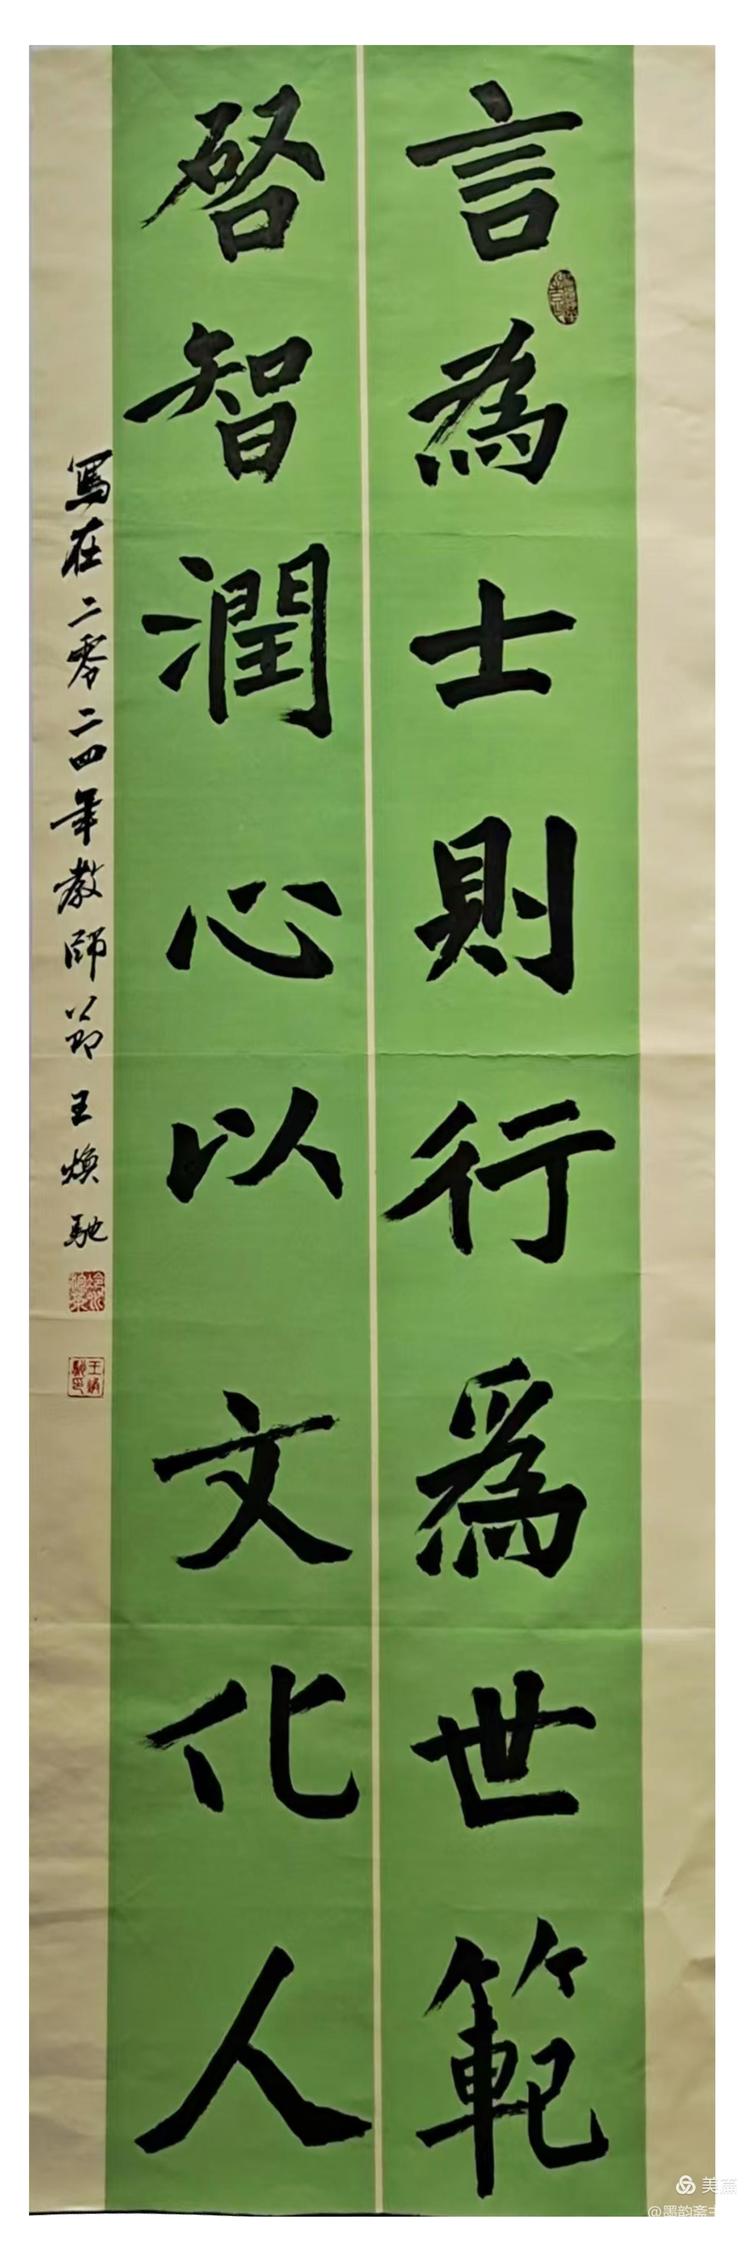 言為士則行爲世範
啓智潤心以文化人
寫在二零二四年教師節 王煥馳
美篇
@墨韵斋主